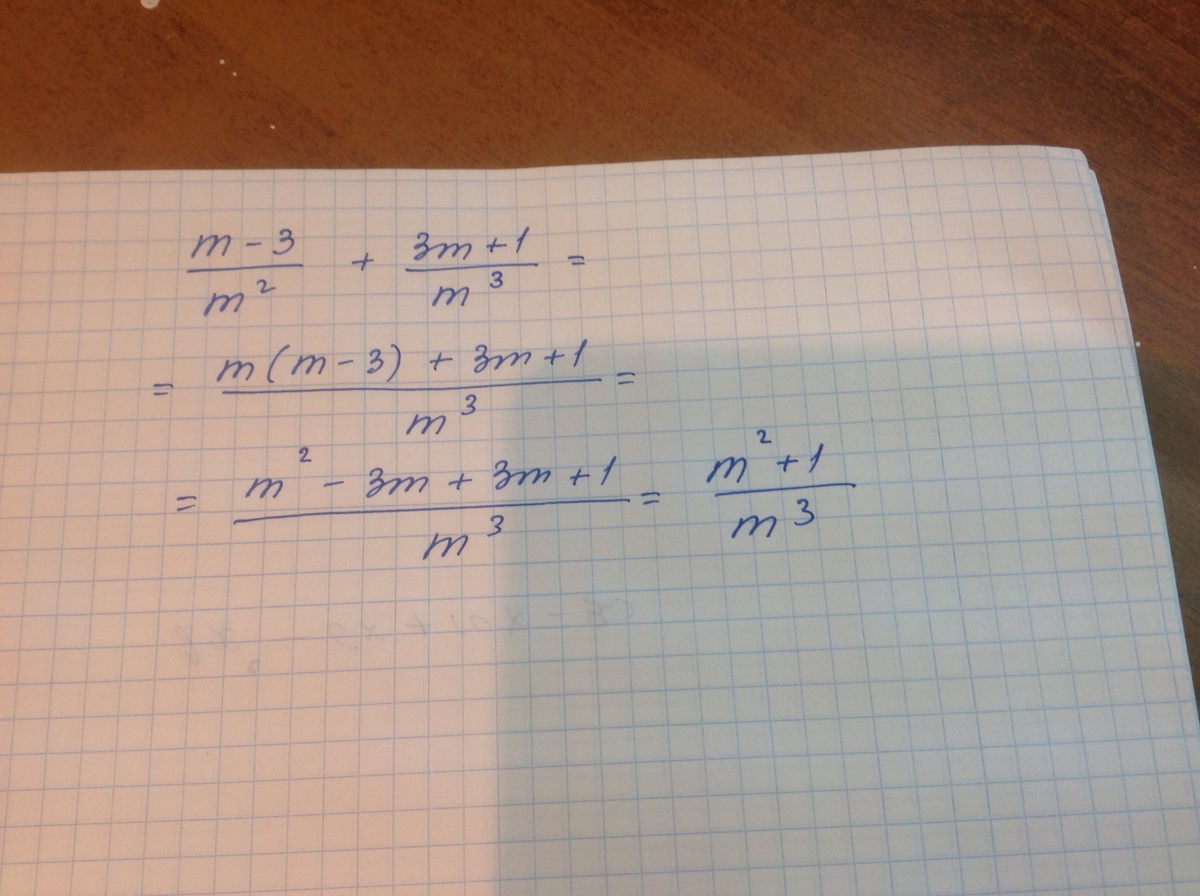 (m - 3)/m² + (3m + 1)/m³ =
= (m(m - 3) + 3m + 1)/m³ =
= (m² - 3m + 3m + 1)/m³ = (m² + 1)/m³